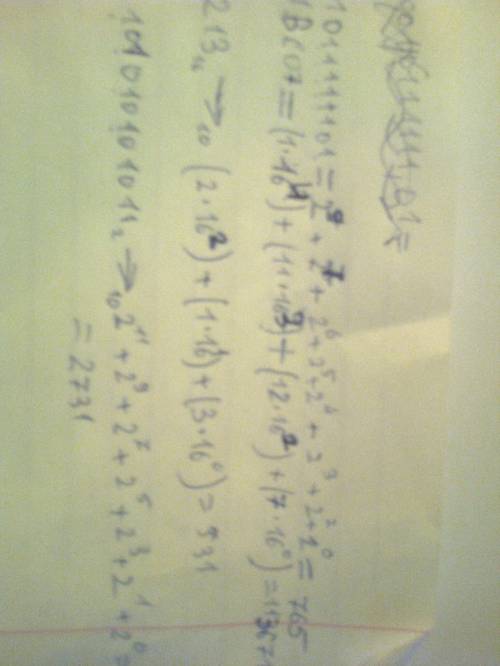 1011111101 = 2⁹ + 2⁷ + 2⁶ + 2⁵ + 2⁴ + 2³ + 2² + 2⁰ = 765
1BC07 = (1·16⁴) + (11·16³) + (12·16²) + (7·16⁰) = 113671
213₁₆ → ₁₀ (2·16²) + (1·16¹) + (3·16⁰) = 531
101010101011₂ → ₁₀ 2¹¹ + 2⁹ + 2⁷ + 2⁵ + 2³ + 2¹ + 2⁰ =
= 2731